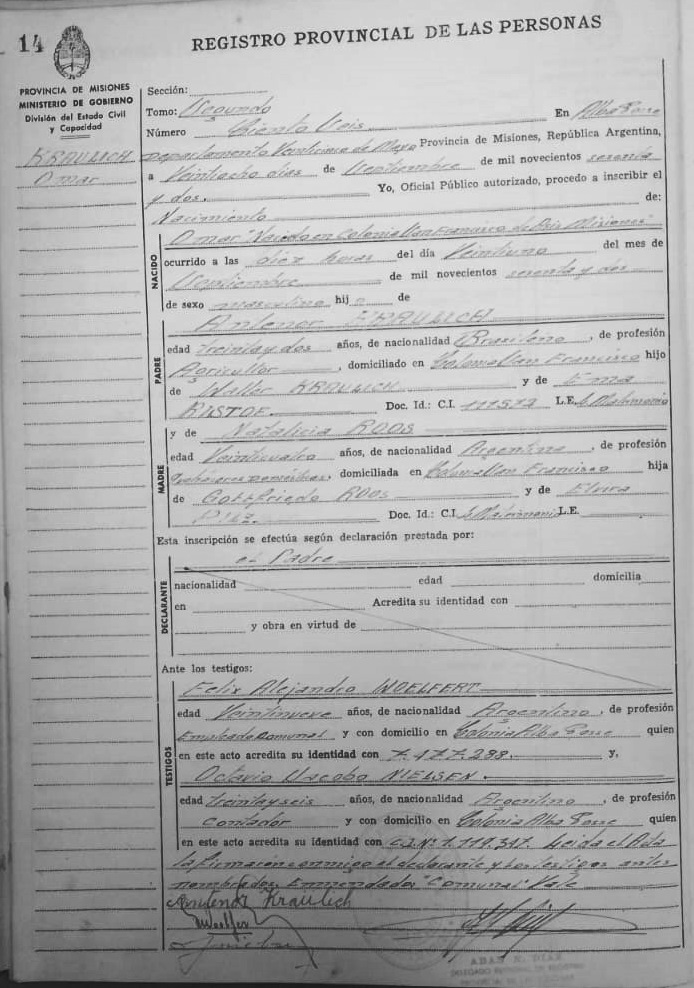 14
REGISTRO PROVINCIAL DE LAS PERSONAS
PROVINCIA DE MISIONES
MINISTERIO DE GOBIERNO
División del Estado Civil
y Capacidad
KRAULICH
Omar
Sección:
Tomo: Segundo En Alba Posse
Número Ciento Seis
Departamento Veinticinco de Mayo Provincia de Misiones, República Argentina,
a Veintiocho días de Septiembre de mil novecientos sesenta
y dos. Yo, Oficial Público autorizado, procedo a inscribir el
Nacimiento de:
NACIDO
Omar" Nacido en Colonia San Francisco de Asis Misiones
ocurrido a las diez horas del día Veintiuno del mes de
Septiembre de mil novecientos sesenta y dos
de sexo masculino hijo de
PADRE
Antenor KRAULICH
edad treinta y dos años, de nacionalidad Brasileño, de profesión
Agricultor, domiciliado en Colonia San Francisco hijo
de Walter KRAULICH y de Ema
Doc. Id.: C.I. L.E. S. Matrimonio
MADRE
y de Natalicia ROOS
edad Veinticuatro años, de nacionalidad Argentina, de profesión
domiciliada en Colonia San Francisco hija
de Gottfriedo ROOS y de Elvira
Doc. Id.: C.I. S. Matrimonio L.E.
Esta inscripción se efectúa según declaración prestada por:
DECLARANTE
el Padre
nacionalidad edad domicilia
en Acredita su identidad con
y obra en virtud de
Ante los testigos:
TESTIGOS
Felix Alejandro WOELFERT
edad Veintinueve años, de nacionalidad Argentino, de profesión
Empleado Comunal y con domicilio en Colonia Alba Posse quien
en este acto acredita su identidad con 7.477.288. y,
Octavio Jacobo NIELSEN.
edad treinta y seis años, de nacionalidad Argentino, de profesión
Contador y con domicilio en Colonia Alba Posse quien
en este acto acredita su identidad con C.I. Nº 1.119.347. Leída el Acta
la firmaron conmigo el declarante y los testigos antes
nombrados. Enmendados "Comunal" Vale
Antenor Kraulich
ADAN R. DIAZ